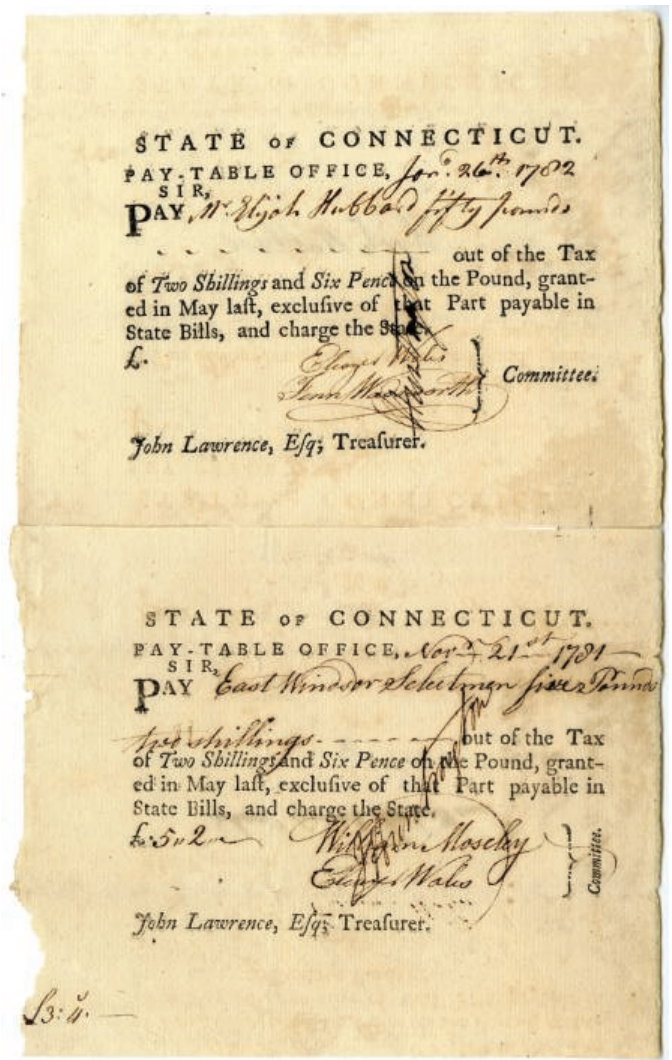 STATE OF CONNECTICUT.
PAY-TABLE OFFICE, Janʸ. 26ᵗʰ. 1782
SIR,
PAY Mʳ Elijah Hubbard fifty pounds
- - - - - - out of the Tax
of Two Shillings and Six Pence on the Pound, grant-
ed in May laſt, excluſive of that Part payable in
State Bills, and charge the State.
£.
Eleazʳ Wales
Fenn Wadsworth
Committee.
John Lawrence, Eſq; Treaſurer.
STATE OF CONNECTICUT.
PAY-TABLE OFFICE, Novʳ. 21ˢᵗ 1781
SIR,
PAY East Windsor Selectmen five Pounds
two shillings - - - - - out of the Tax
of Two Shillings and Six Pence on the Pound, grant-
ed in May laſt, excluſive of that Part payable in
State Bills, and charge the State.
£. 5 " 2 "
William Moseley
Eleazʳ Wales
Committee.
John Lawrence, Eſq; Treaſurer.
£3: 4. —